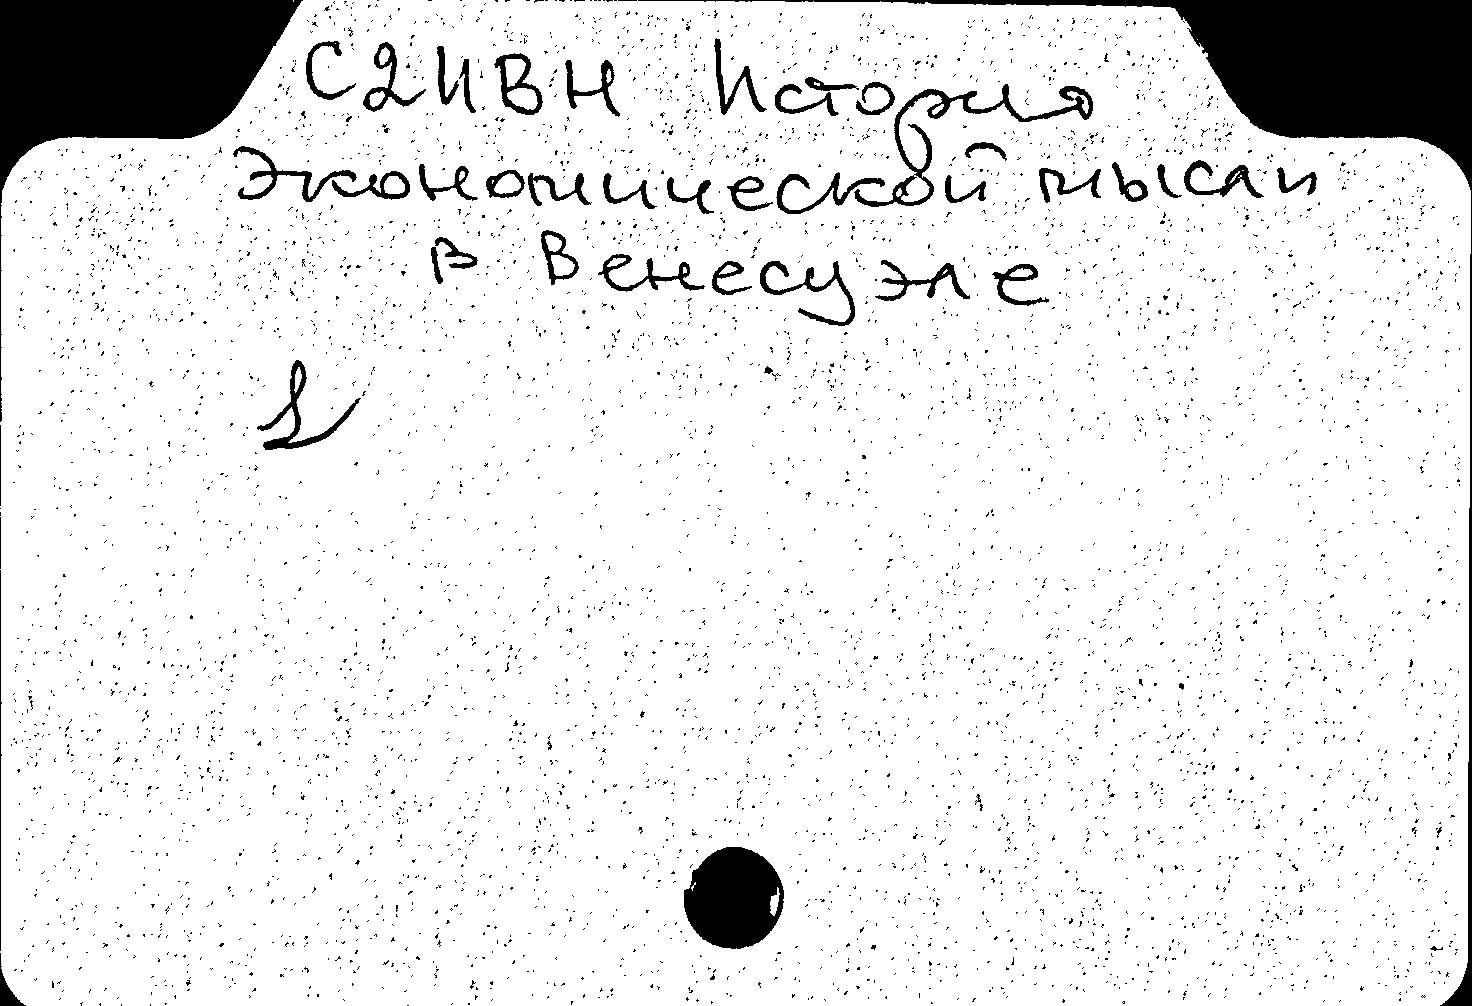 С2ИВН История
экономической мысли
в Венесуэле